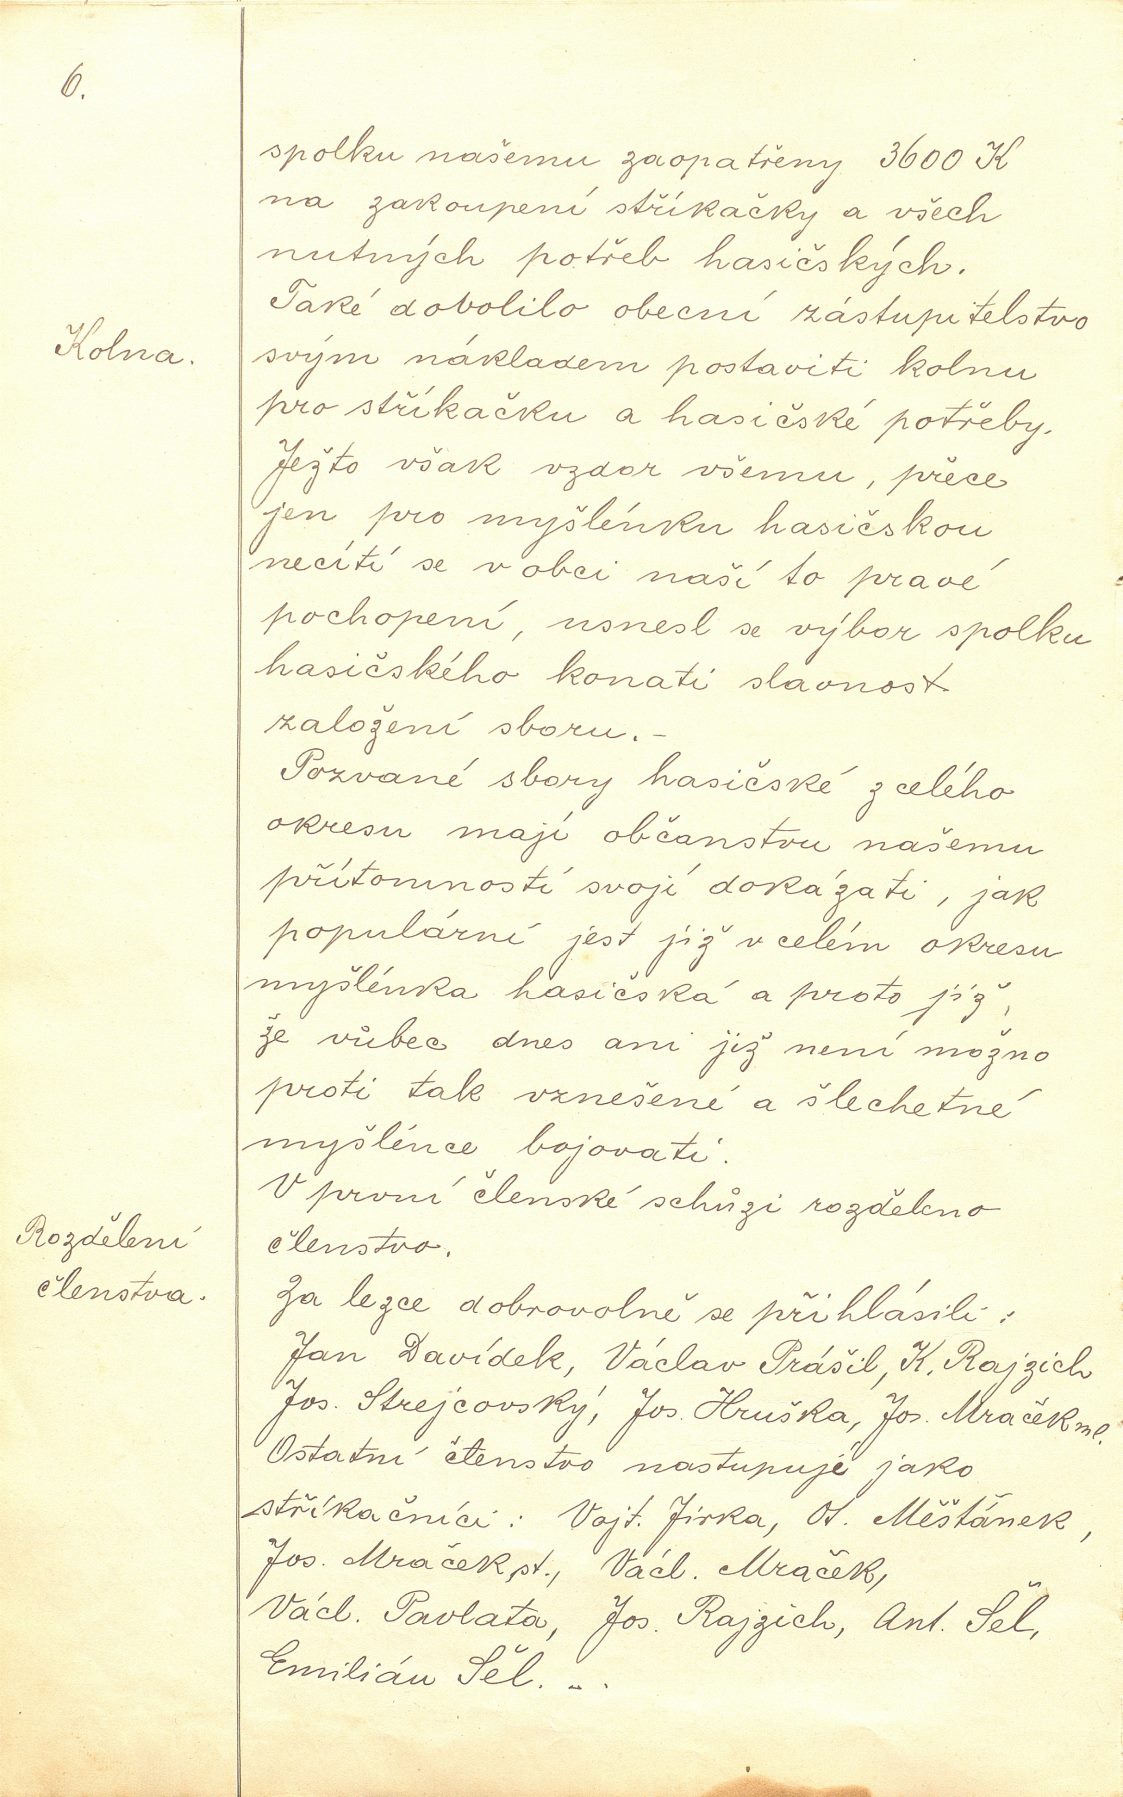 6.
spolku našemu zaopatřeny 3600 K
na zakoupení stříkačky a všech
nutných potřeb hasičských.
Také dovolilo obecní zástupitelstvo
Kolna.
svým nákladem postaviti kolnu
pro stříkačku a hasičské potřeby.
Ježto však vzdor všemu, přece
jen pro myšlénku hasičskou
necítí se v obci naší to pravé
pochopení, usnesl se výbor spolku
hasičského konati slavnost
založení sboru. -
Pozvané sbory hasičské z celého
okresu mají občanstvu našemu
přítomností svojí dokázati, jak
populární jest již v celém okresu
myšlénka hasičská a proto již,
že vůbec dnes ani již není možno
proti tak vznešené a šlechetné
myšlénce bojovati.
V první členské schůzi rozděleno
Rozdělení
členstvo.
členstva.
Za lezce dobrovolně se přihlásili:
Jan Davídek, Václav Prášil, K. Rajzich
Jos. Strejcovský, Jos. Hruška, Jos. Mraček ml.
Ostatní členstvo nastupuje jako
stříkačníci: Vojt. Jirka, Ot. Měšťánek,
Jos. Mraček st., Václ. Mraček,
Václ. Pavlata, Jos. Rajzich, Ant. Šěl,
Emilián Šěl. - .